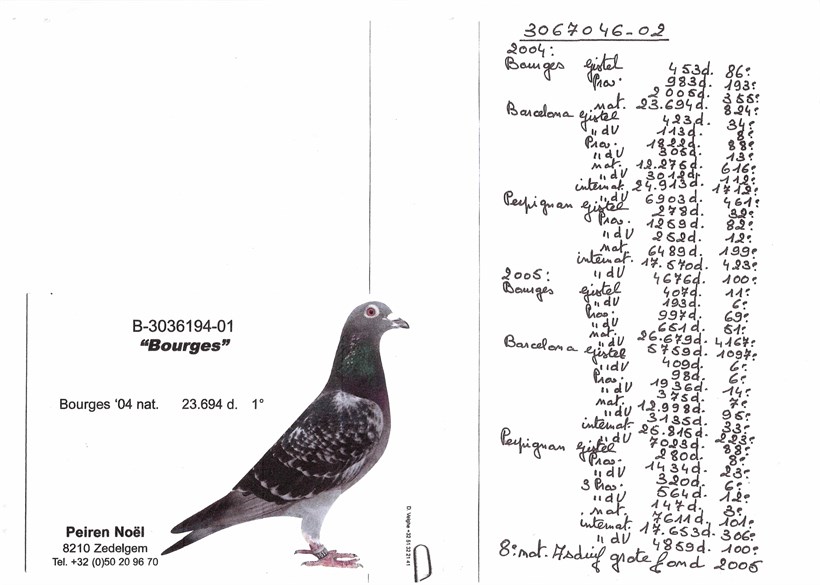 B-3036194-01
"Bourges"
Bourges '04 nat. 23.694 d. 1°
Peiren Noël
8210 Zedelgem
Tel. +32 (0)50 20 96 70
3067046-02
2004:
Bourges Gistel 453d. 86e
Prov. 983d. 193e
2006d. 355e
nat. 23.694d. 824e
Barcelona Gistel 423d. 34e
"dV 113d. 8e
Prov. 1822d. 88e
"dV 305d. 13e
nat. 12.276d. 616e
"dV 3012d. 112e
internat. 24.913d. 1712e
"dV 6903d. 461e
Perpignan Gistel 278d. 32e
Prov. 1269d. 82e
"dV 262d. 12e
nat. 6489d. 199e
internat. 17.570d. 423e
"dV 4676d. 100e
2005:
Bourges Gistel 407d. 11e
"dV 193d. 6e
Prov. 997d. 69e
651d. 51e
nat 26.679d. 4167e
"dV 5759d. 1097e
Barcelona Gistel 409d. 6e
"dV 98d. 6e
Prov. 1936d. 14e
"dV 375d. 7e
nat. 12.998d. 95e
"dV 3135d. 33e
internat 25.816d. 223e
"dV 7023d. 88e
Perpignan Gistel 280d. 8e
Prov. 1434d. 23e
"dV 320d. 6e
3 Prov. 564d. 12e
"dV 147d. 3e
nat. 7611d. 101e
internat. 17.653d. 306e
"dV 4859d. 100e
8e nat. Asduif grote fond 2005